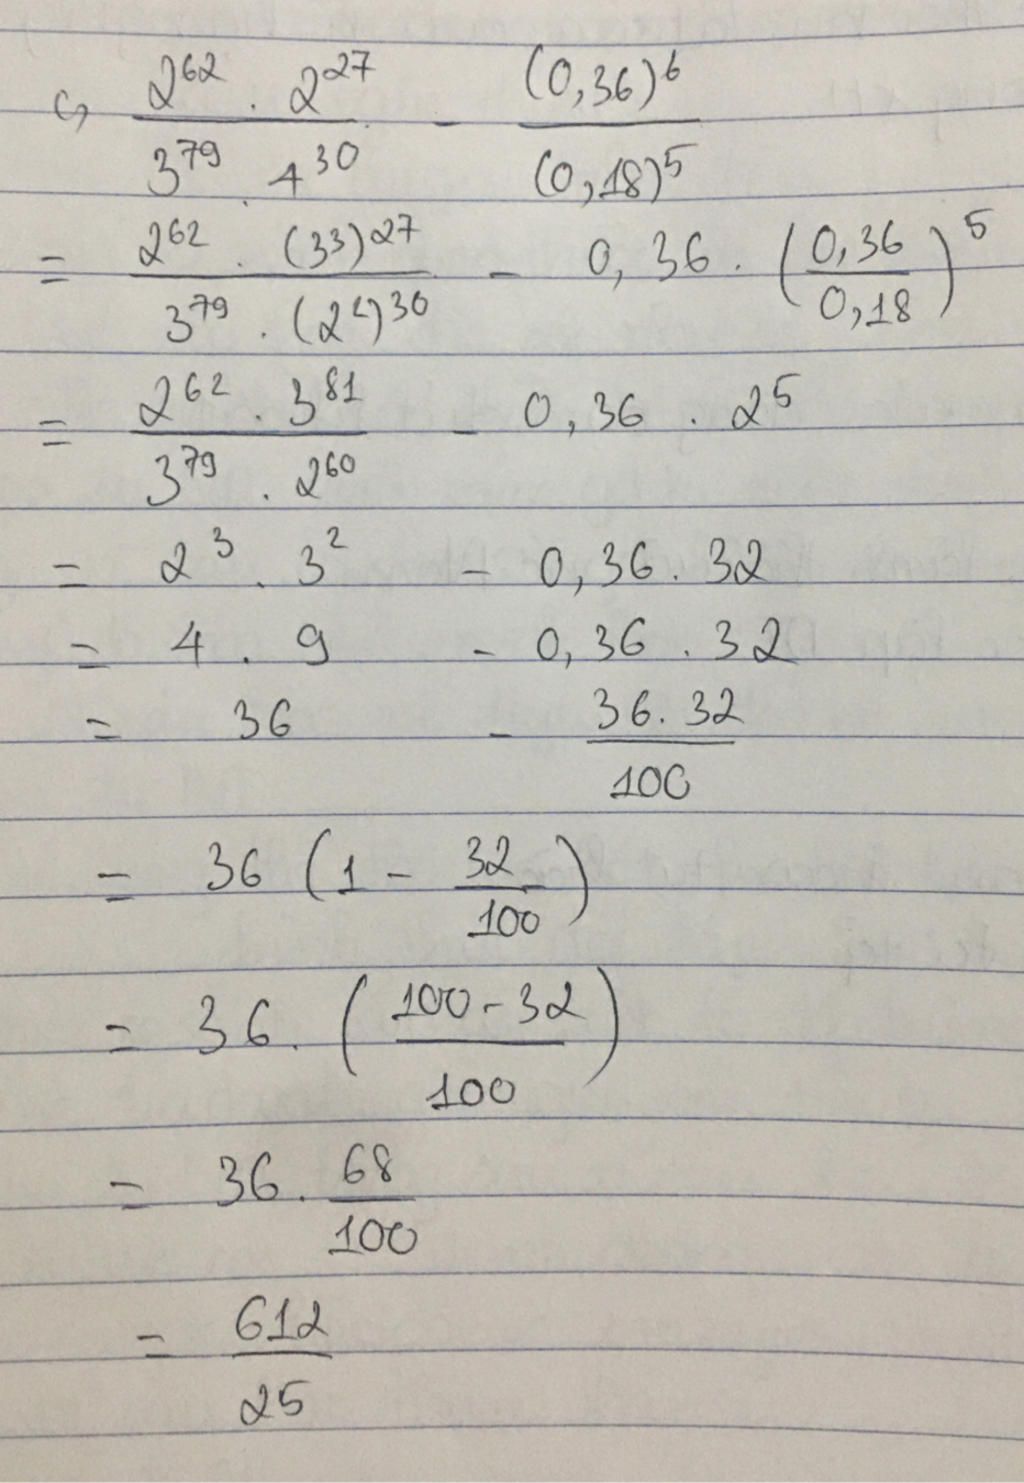 c, 2^62 . 2^27 / 3^79 . 4^30 - (0,36)^6 / (0,18)^5
= 2^62 . (3^3)^27 / 3^79 . (2^2)^30 - 0,36 . (0,36 / 0,18)^5
= 2^62 . 3^81 / 3^79 . 2^60 - 0,36 . 2^5
= 2^3 . 3^2 - 0,36 . 32
= 4 . 9 - 0,36 . 32
= 36 - 36 . 32 / 100
= 36 (1 - 32 / 100)
= 36 . (100 - 32 / 100)
= 36 . 68 / 100
= 612 / 25